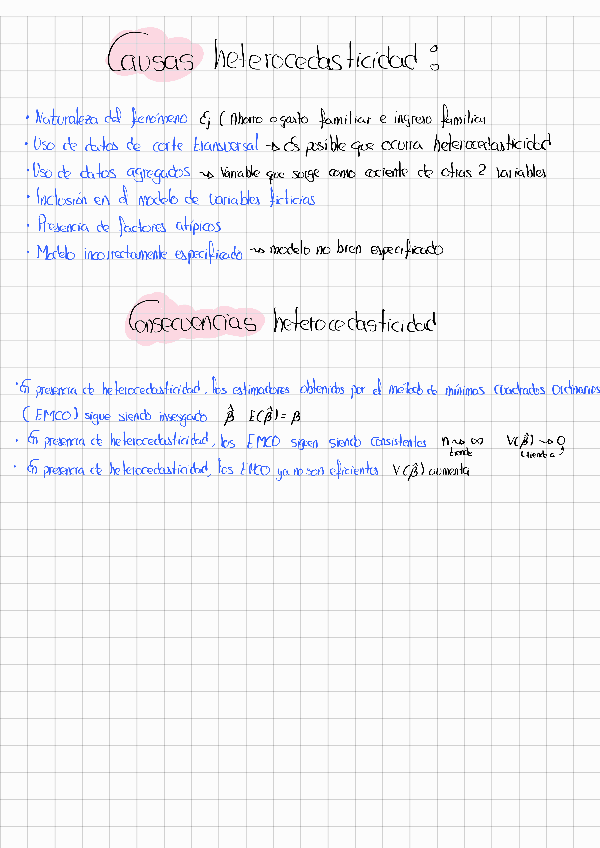 Causas heterocedasticidad:
· Naturaleza del fenómeno Ej (Ahorro o gasto familiar e ingreso familiar
· Uso de datos de corte transversal → Es posible que ocurra heterocedasticidad
· Uso de datos agregados → Variable que surge como cociente de otras 2 variables
· Inclusión en el modelo de variables ficticias
· Presencia de factores atípicos
· Modelo incorrectamente especificado → modelo no bien especificado
Consecuencias heterocedasticidad
· En presencia de heterocedasticidad, los estimadores obtenidos por el método de mínimos cuadrados ordinarios
(EMCO) sigue siendo insesgado β̂ E(β̂) = β
· En presencia de heterocedasticidad, los EMCO siguen siendo consistentes n → ∞ V(β̂) → 0
tiende tiende a
· En presencia de heterocedasticidad, los EMCO ya no son eficientes V(β̂) aumenta